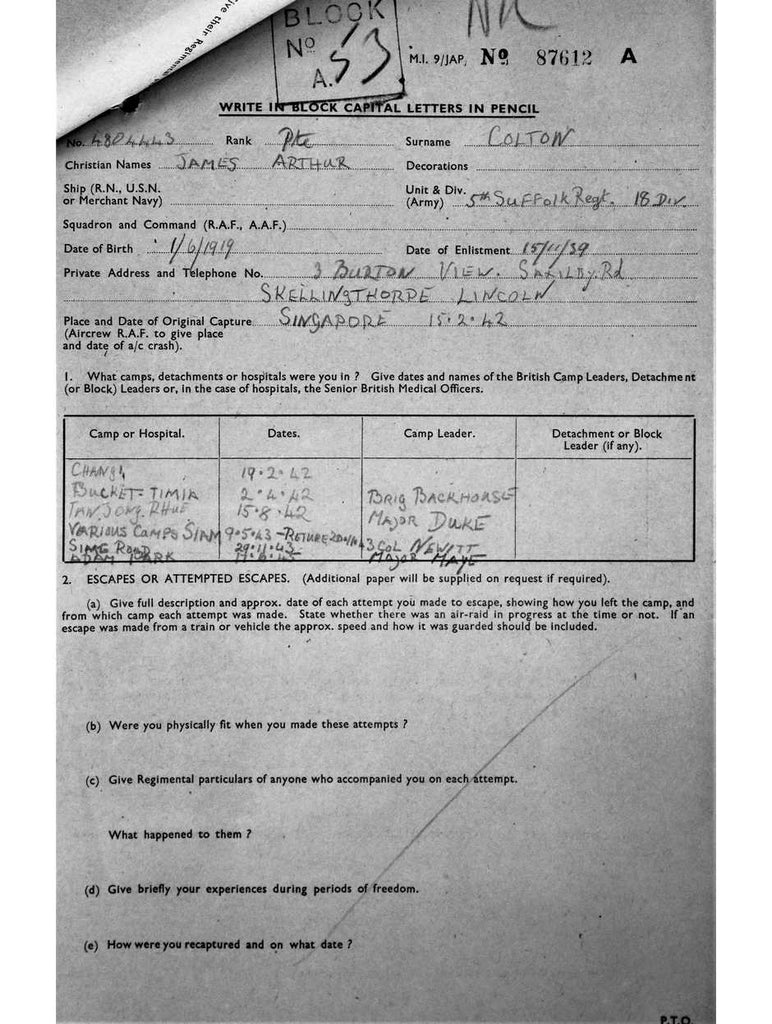 ive their Regimenta
BLOCK
Nº
A. 53
NR
M.I. 9/JAP, Nº 87612 A
WRITE IN BLOCK CAPITAL LETTERS IN PENCIL
No. 4804443 Rank Pte Surname COLTON
Christian Names JAMES ARTHUR Decorations
Ship (R.N., U.S.N. or Merchant Navy)
Unit & Div. (Army) 5th SUFFOLK Regt. 18 DIV.
Squadron and Command (R.A.F., A.A.F.)
Date of Birth 1/6/1919 Date of Enlistment 15/11/39
Private Address and Telephone No. 3 BURTON VIEW. SAXILBY. Rd
SKELLINGTHORPE LINCOLN
Place and Date of Original Capture SINGAPORE 15.2.42
(Aircrew R.A.F. to give place
and date of a/c crash).
1. What camps, detachments or hospitals were you in ? Give dates and names of the British Camp Leaders, Detachment
(or Block) Leaders or, in the case of hospitals, the Senior British Medical Officers.
Camp or Hospital. Dates. Camp Leader. Detachment or Block Leader (if any).
CHANGI 19.2.42
BUCKET=TIMIA 2.4.42 BRIG BACKHOUSE
TANJONG RHUE 15.8.42 MAJOR DUKE
VARIOUS CAMPS SIAM 9.5.43 - RETURE
SIME ROAD 29.11.43 COL NEWITT
ADAM PARK MAJOR MAYE
2. ESCAPES OR ATTEMPTED ESCAPES. (Additional paper will be supplied on request if required).
(a) Give full description and approx. date of each attempt you made to escape, showing how you left the camp, and
from which camp each attempt was made. State whether there was an air-raid in progress at the time or not. If an
escape was made from a train or vehicle the approx. speed and how it was guarded should be included.
(b) Were you physically fit when you made these attempts ?
(c) Give Regimental particulars of anyone who accompanied you on each attempt.
What happened to them ?
(d) Give briefly your experiences during periods of freedom.
(e) How were you recaptured and on what date ?
P.T.O.